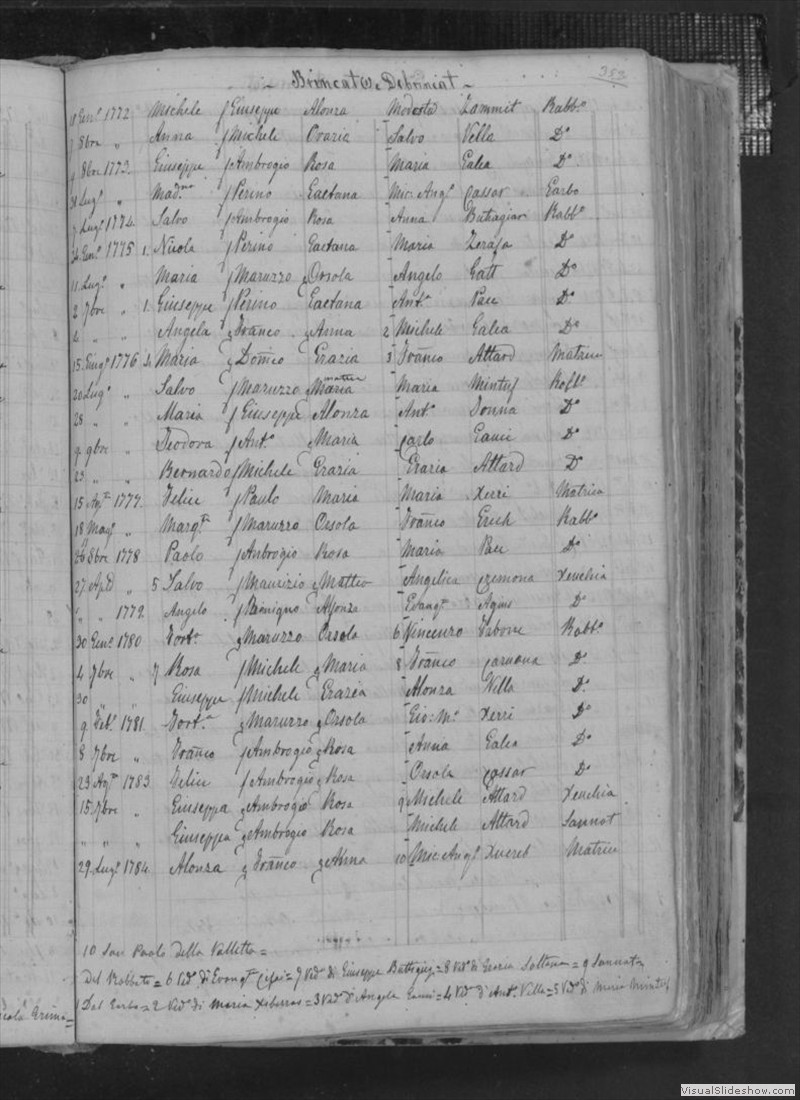 353
Brincat & Debrincat
11 Genº 1772 Michele f Giuseppe Alonza Modesta Zammit Rabbº
7 8bre " Anna f Michele Grazia Salvo Vella Dº
9 8bre 1773. Giuseppe f Ambrogio Rosa Maria Galea Dº
31 Lugº " Madna f Perino Gaetana Mic: Angº Cassar Garbo
7 Lugº 1774. Salvo f Ambrogio Rosa Anna Buttagiar Rabbº
24 Genº 1775 1. Nicola f Perino Gaetana Maria Dº
11 Lugº " Maria f Maruzzo & Orsola Angelo Gatt Dº
2 7bre " 1. Giuseppe f Perino Gaetana Antª Pace Dº
4 " " Angela & Franco & Anna 2 Michele Galea Dº
15 Giugº 1776 4 Maria & Domco Grazia 3 Franco Attard Matrice
20 Lugº " Salvo f Maruzzo & Maria Maria Mintuf Rabbº
28 " " Maria f Giuseppe Alonza Antº Dº
9 9bre " Teodora f Antº & Maria Carlo Gauci Dº
23 " " Bernardo f Michele Grazia Grazia Attard Dº
15 Agto 1777. Felice f Paolo Maria Maria Xerri Matrice
18 Magº " Margta f Maruzzo Orsola Franco Grech Rabbº
26 8bre 1778 Paolo f Ambrogio Rosa Maria Pace Dº
27 Aple " 5 Salvo f Maurizio & Matteo Angelica Cremona Xeuchia
" " 1779. Angelo f Benigno Alfonza Evangta Agius Dº
30 Genº 1780 Forta & Maruzzo Orsola 6 Vincenzo Rabbº
4 7bre " 7 Rosa f Michele & Maria 8 Franco Dº
30 " " Giuseppe f Michele Grazia Alonza Vella Dº
9 Febº 1781. Forta & Maruzzo & Orsola Gio: Mª Xerri Dº
8 7bre " Franco f Ambrogio & Rosa Anna Galea Dº
23 Agto 1783. Felice f Ambrogio & Rosa Orsola Cassar Dº
15 7bre " Giuseppa & Ambrogio Rosa 9 Michele Attard Xeuchia
" " " Giuseppa & Ambrogio Rosa Michele Attard Sannat
29 Lugº 1784. Alonza & Franco & Anna 10 Mic: Angº Xuereb Matrice
10 San Paolo della Valletta =
Del Rabbato = 6 Vedª di Evangta = 7 Vedª di Giuseppe Buttigieg = 8 Vedº di Grazia Soltana = 9 Sannat
1 Dal Garbo = 2 Vedº di Maria Xiberras = 3 Vedº d'Angela Gauci = 4 Vedª d'Antº Vella = 5 Vedº di Maria Mintuf
VisualSlideshow.com